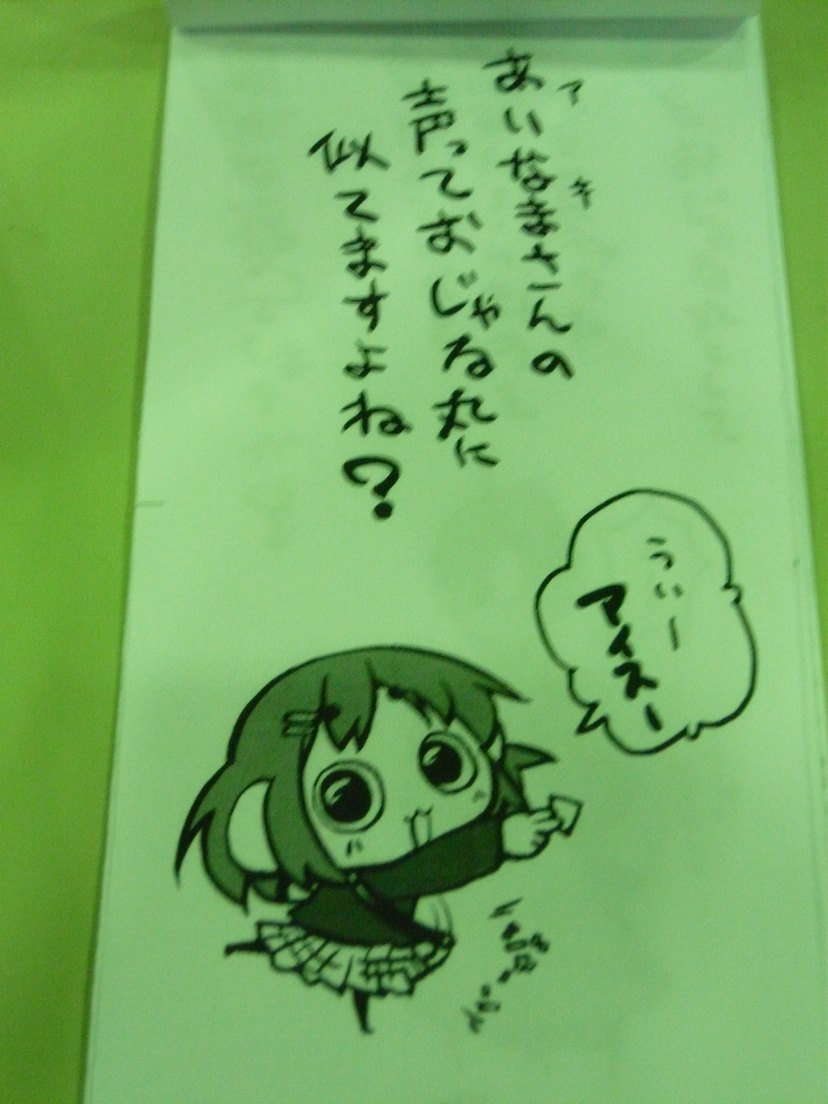 あいなまさんの
アキ
声っておじゃる丸に
似てますよね?
うぃー
アイスー